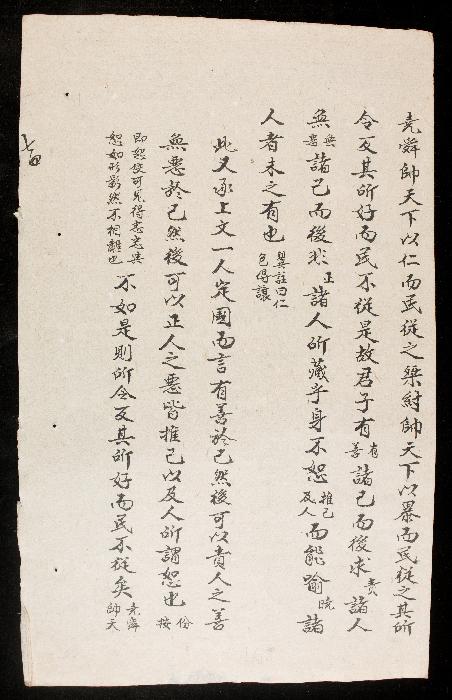 堯舜帥天下以仁而民從之桀紂帥天下以暴而民從之其所
令反其所好而民不從是故君子有有善諸己而後求責諸人
無無惡諸己而後非正諸人所藏乎身不恕推己及人而能喻曉諸
人者未之有也翼註曰仁包得讓
此又承上文一人定國而言有善於己然後可以責人之善
無惡於己然後可以正人之惡皆推己以及人所謂恕也份按
即恕便可見得忠忠與恕如形影然不相離也不如是則所令反其所好而民不從矣堯舜帥天